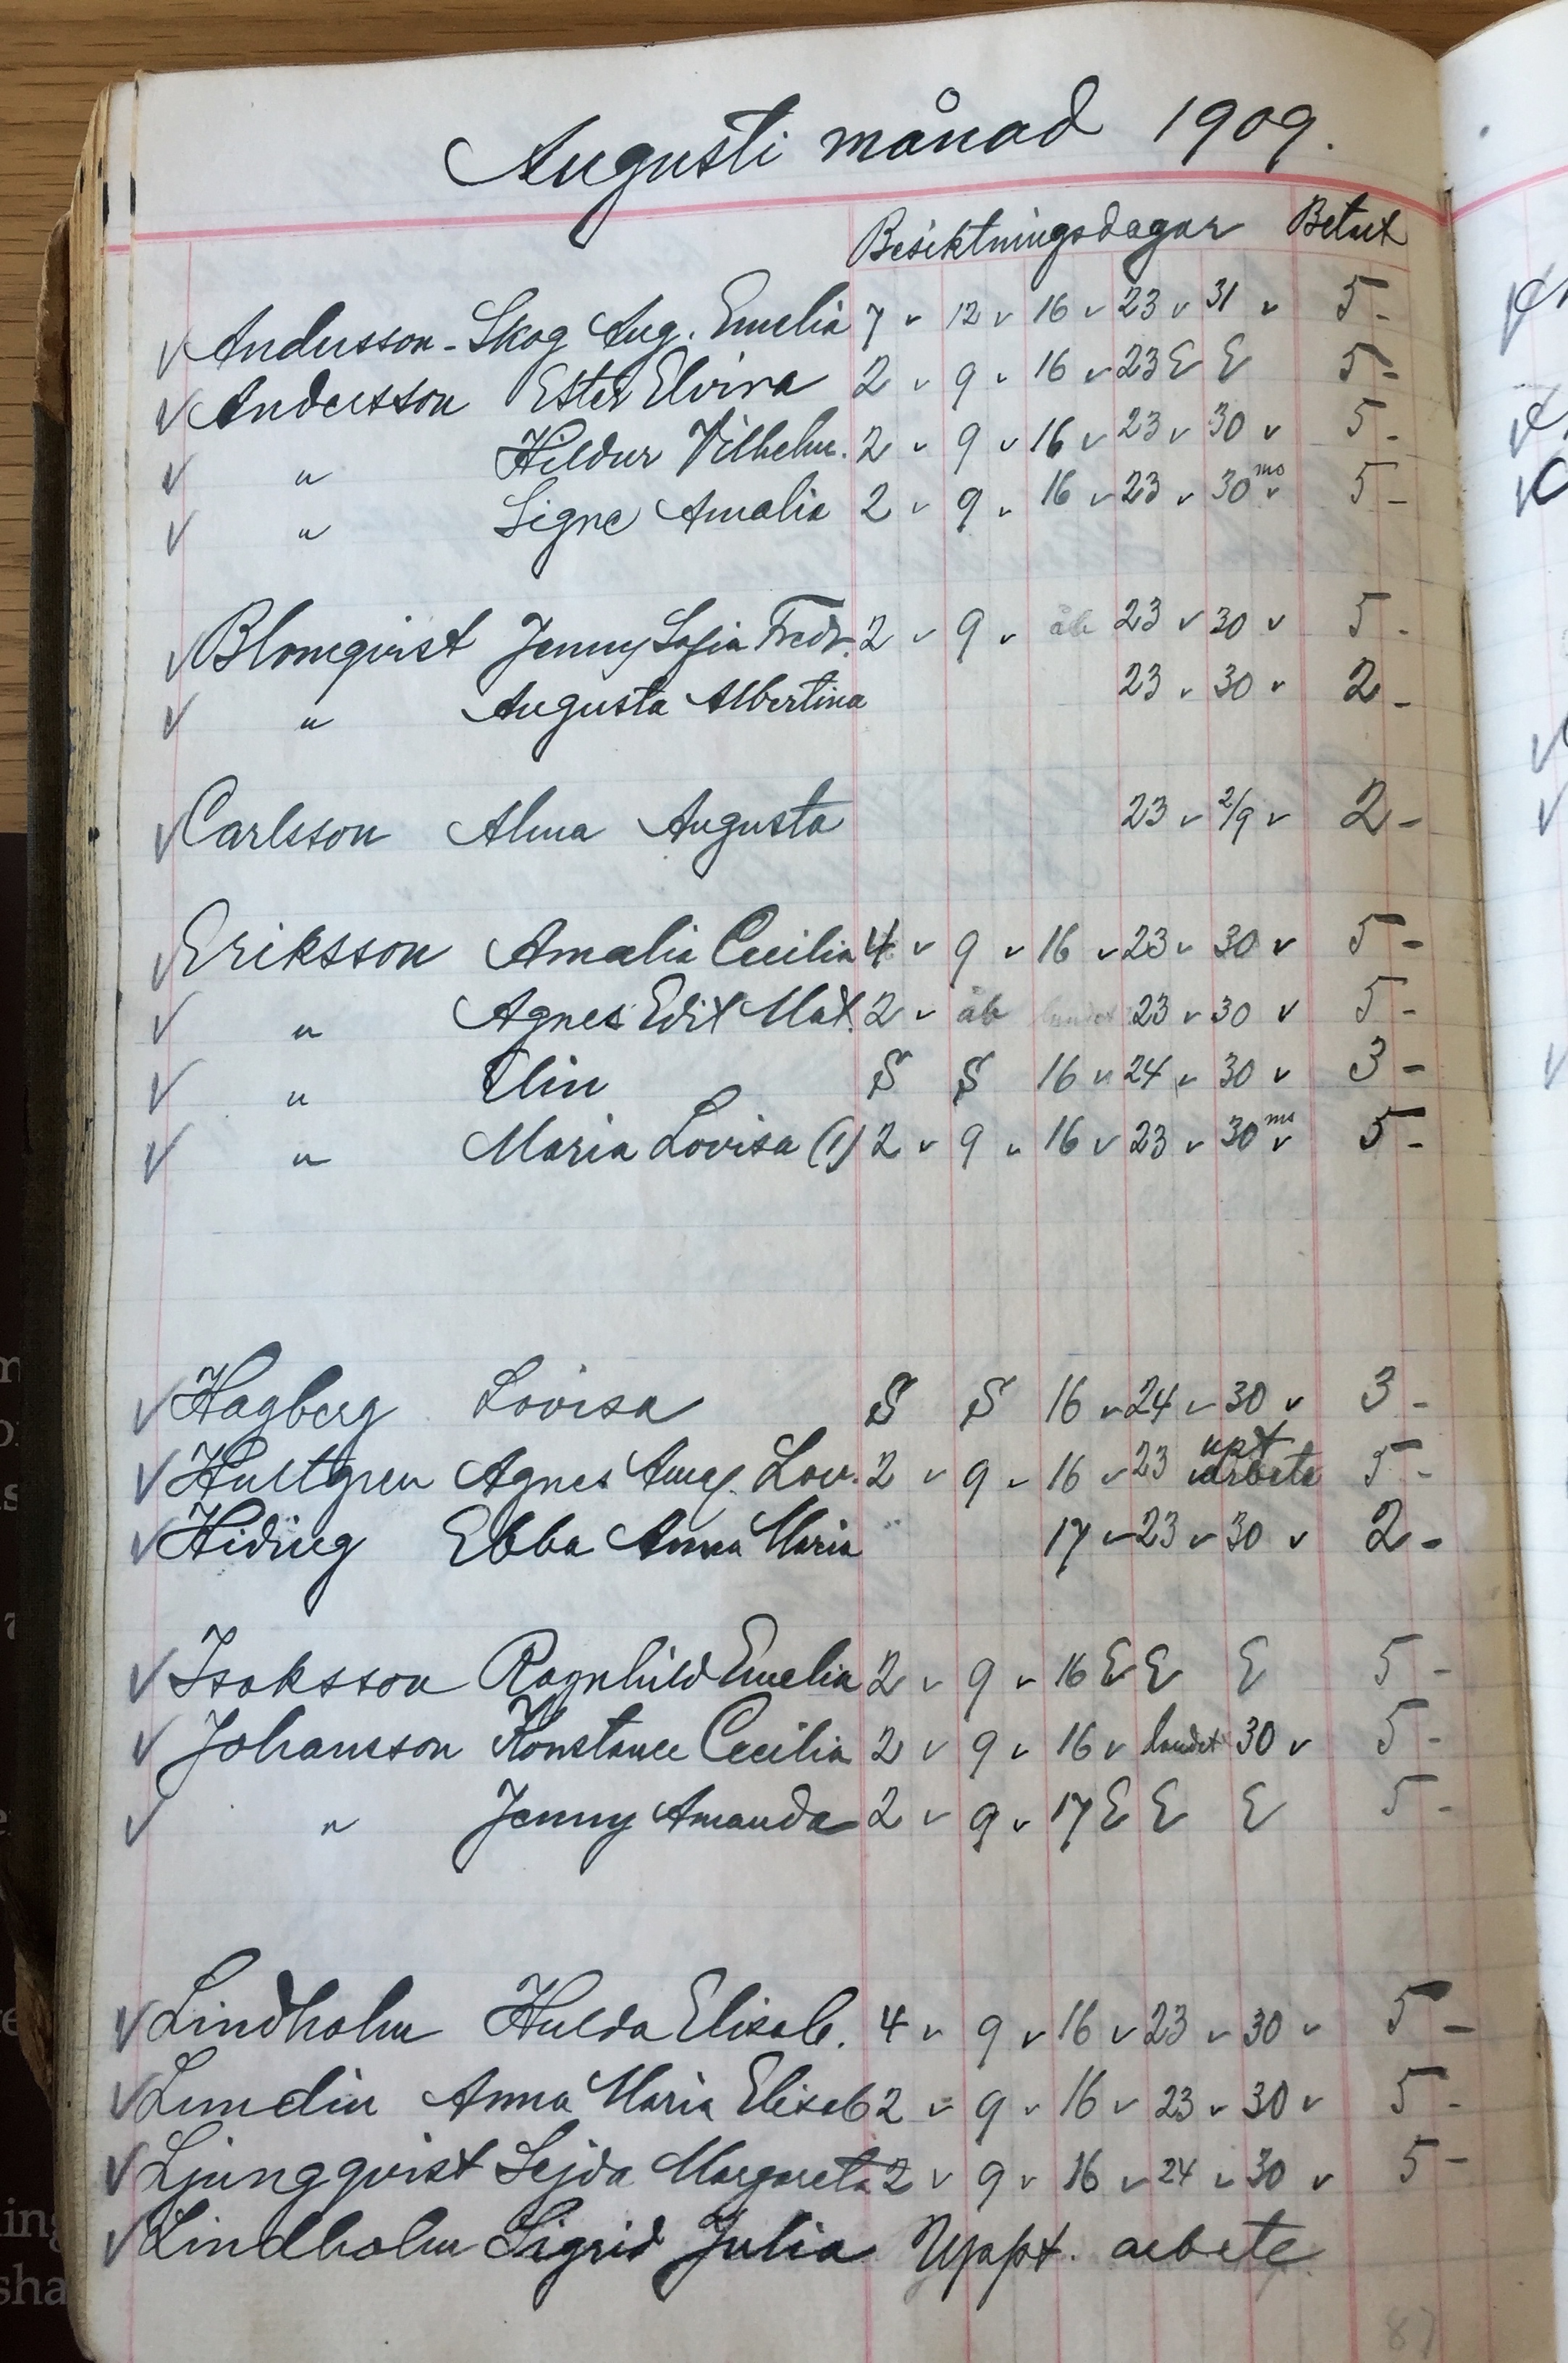 Augusti månad 1909.
Besiktningsdagar Betalt
√ Andersson-Skog Aug. Emelia 7 v 12 v 16 v 23 v 31 v 5 -
√ Andersson Ester Elvira 2 v 9 v 16 v 23 E E 5 -
√ " Hildur Vilhelm. 2 v 9 v 16 v 23 v 30 v 5 -
√ " Signe Amalia 2 v 9 v 16 v 23 v 30 ms v 5 -
√ Blomqvist Jenny Sofia Fredr. 2 v 9 v åb 23 v 30 v 5 -
√ " Augusta Albertina 23 v 30 v 2 -
√ Carlsson Alma Augusta 23 v 2/9 v 2 -
√ Eriksson Amalia Cecilia 4 v 9 v 16 v 23 v 30 v 5 -
√ " Agnes Edit Mat. 2 v åb landet 23 v 30 v 5 -
√ " Elin S S 16 v 24 v 30 v 3 -
√ " Maria Lovisa (1) 2 v 9 v 16 v 23 v 30 ms v 5 -
√ Hagberg Lovisa S S 16 v 24 v 30 v 3 -
√ Hultgren Agnes Lov. 2 v 9 v 16 v 23 upt arbete 5 -
√ Hiding Ebba Anna Maria 17 v 23 v 30 v 2 -
√ Isaksson Ragnhild Emelia 2 v 9 v 16 E E E 5 -
√ Johansson Konstance Cecilia 2 v 9 v 16 v landet 30 v 5 -
√ " Jenny Amanda 2 v 9 v 17 E E E 5 -
√ Lindholm Hulda Elisab. 4 v 9 v 16 v 23 v 30 v 5 -
√ Lundin Anna Maria Elisab 2 v 9 v 16 v 23 v 30 v 5 -
√ Ljungqvist Sejda Margareta 2 v 9 v 16 v 24 v 30 v 5 -
√ Lindholm Sigrid Julia Uppt. arbete
87